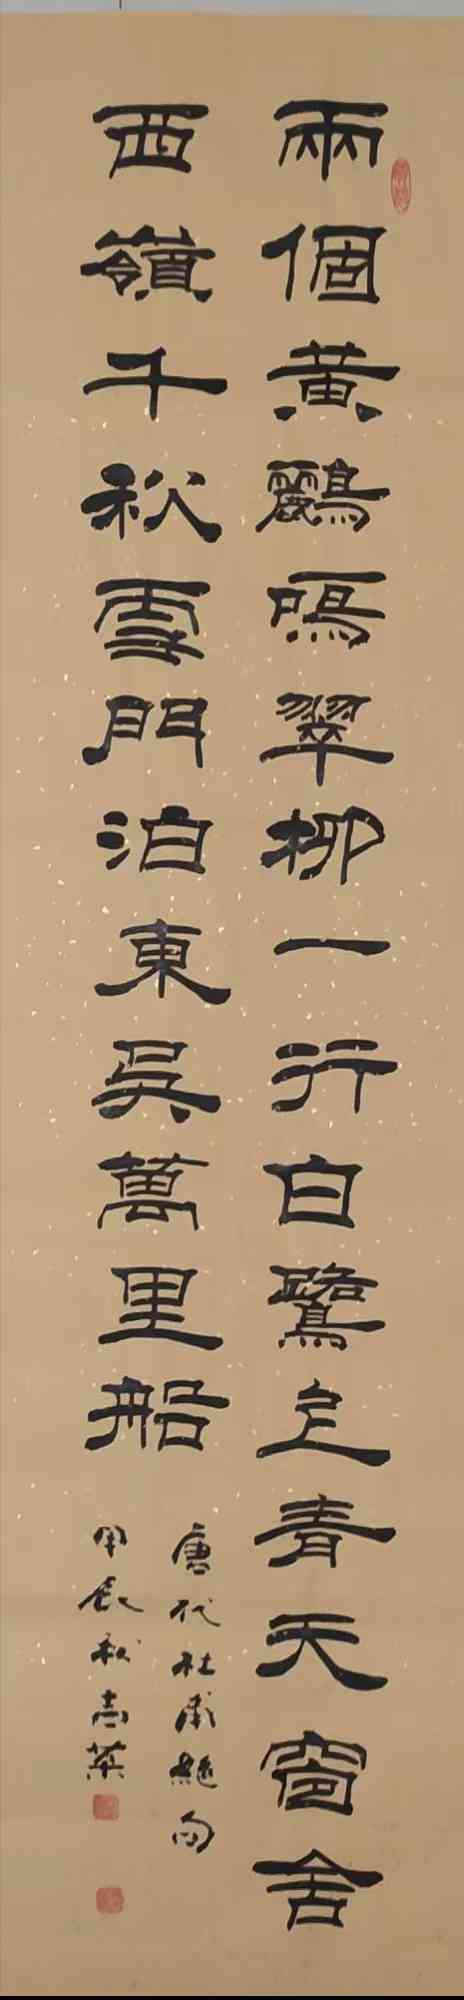 兩個黃鸝鳴翠柳一行白鷺上青天窗含
西嶺千秋雪門泊東吳萬里船
唐代杜甫絕句
甲辰秋志英